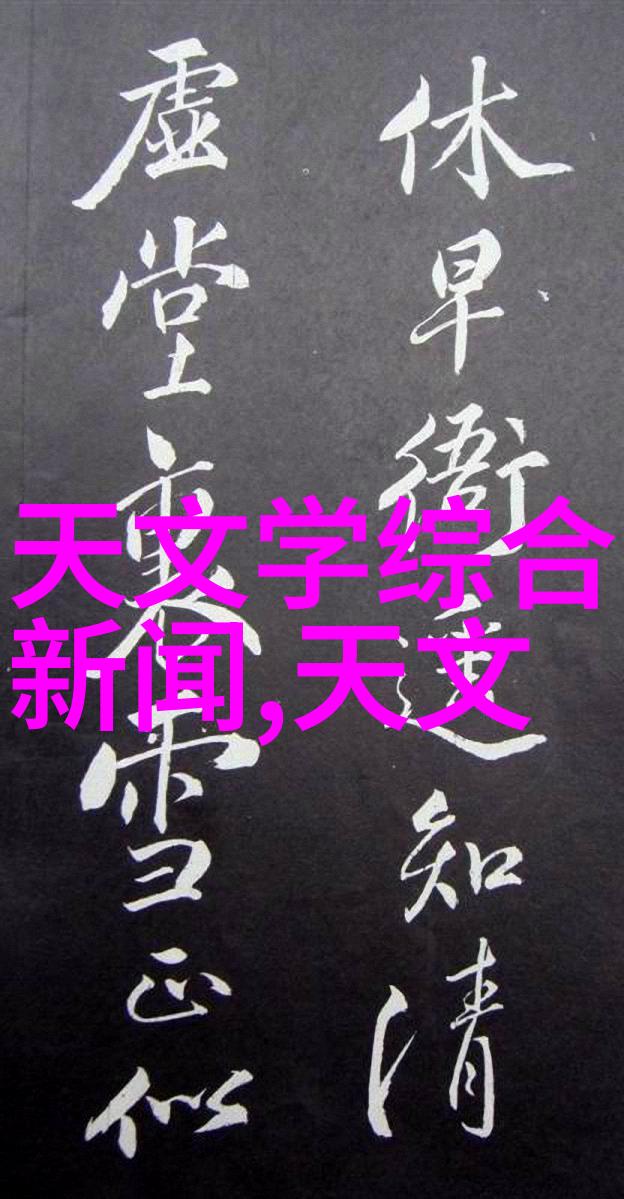 休早衙遥知清
虚堂裏雪正似
天文学综合
新闻,天文